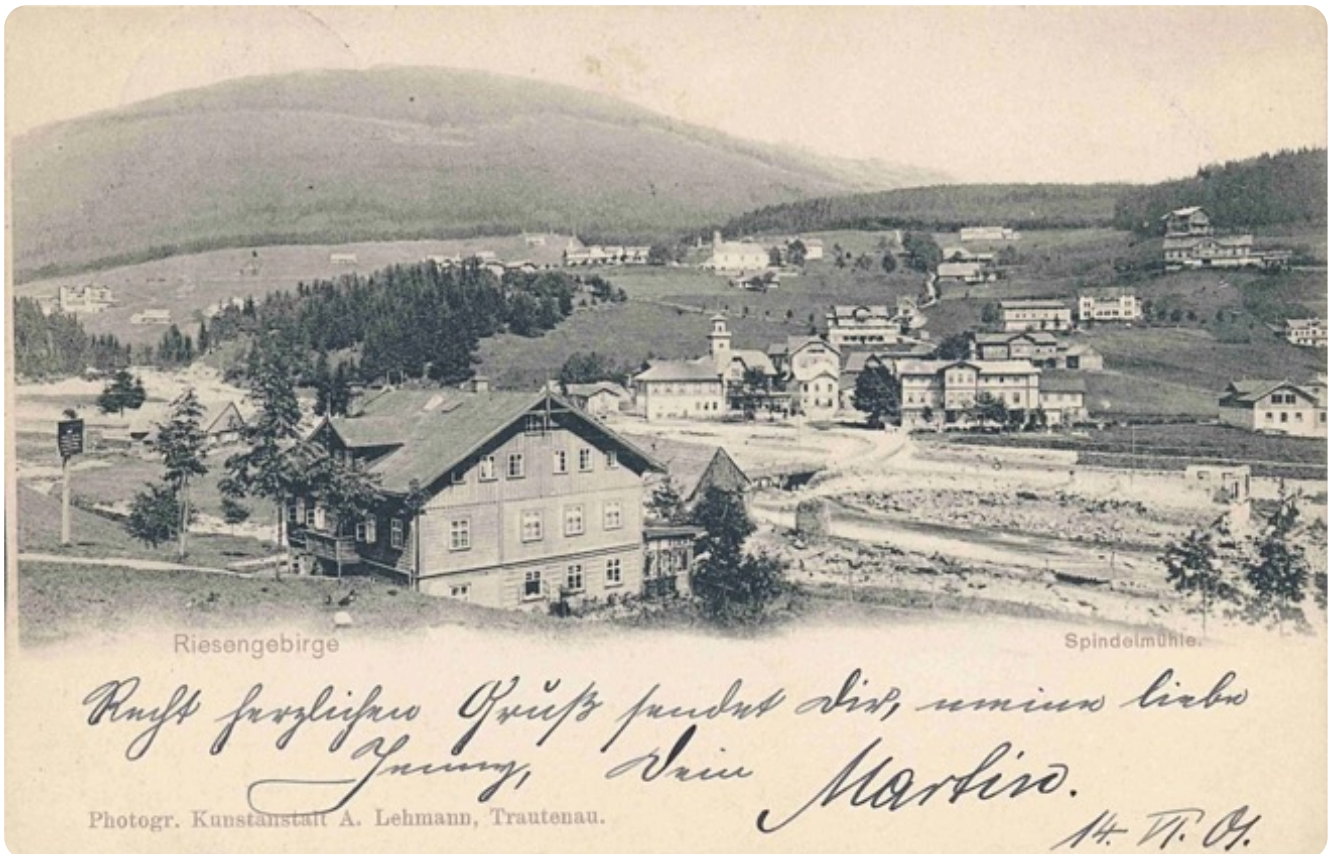 Riesengebirge
Spindelmühle.
Recht herzlichen Gruß sendet Dir, meine liebe
Jenny, Dein Martin.
Photogr. Kunstanstalt A. Lehmann, Trautenau.
14. VI. 01.